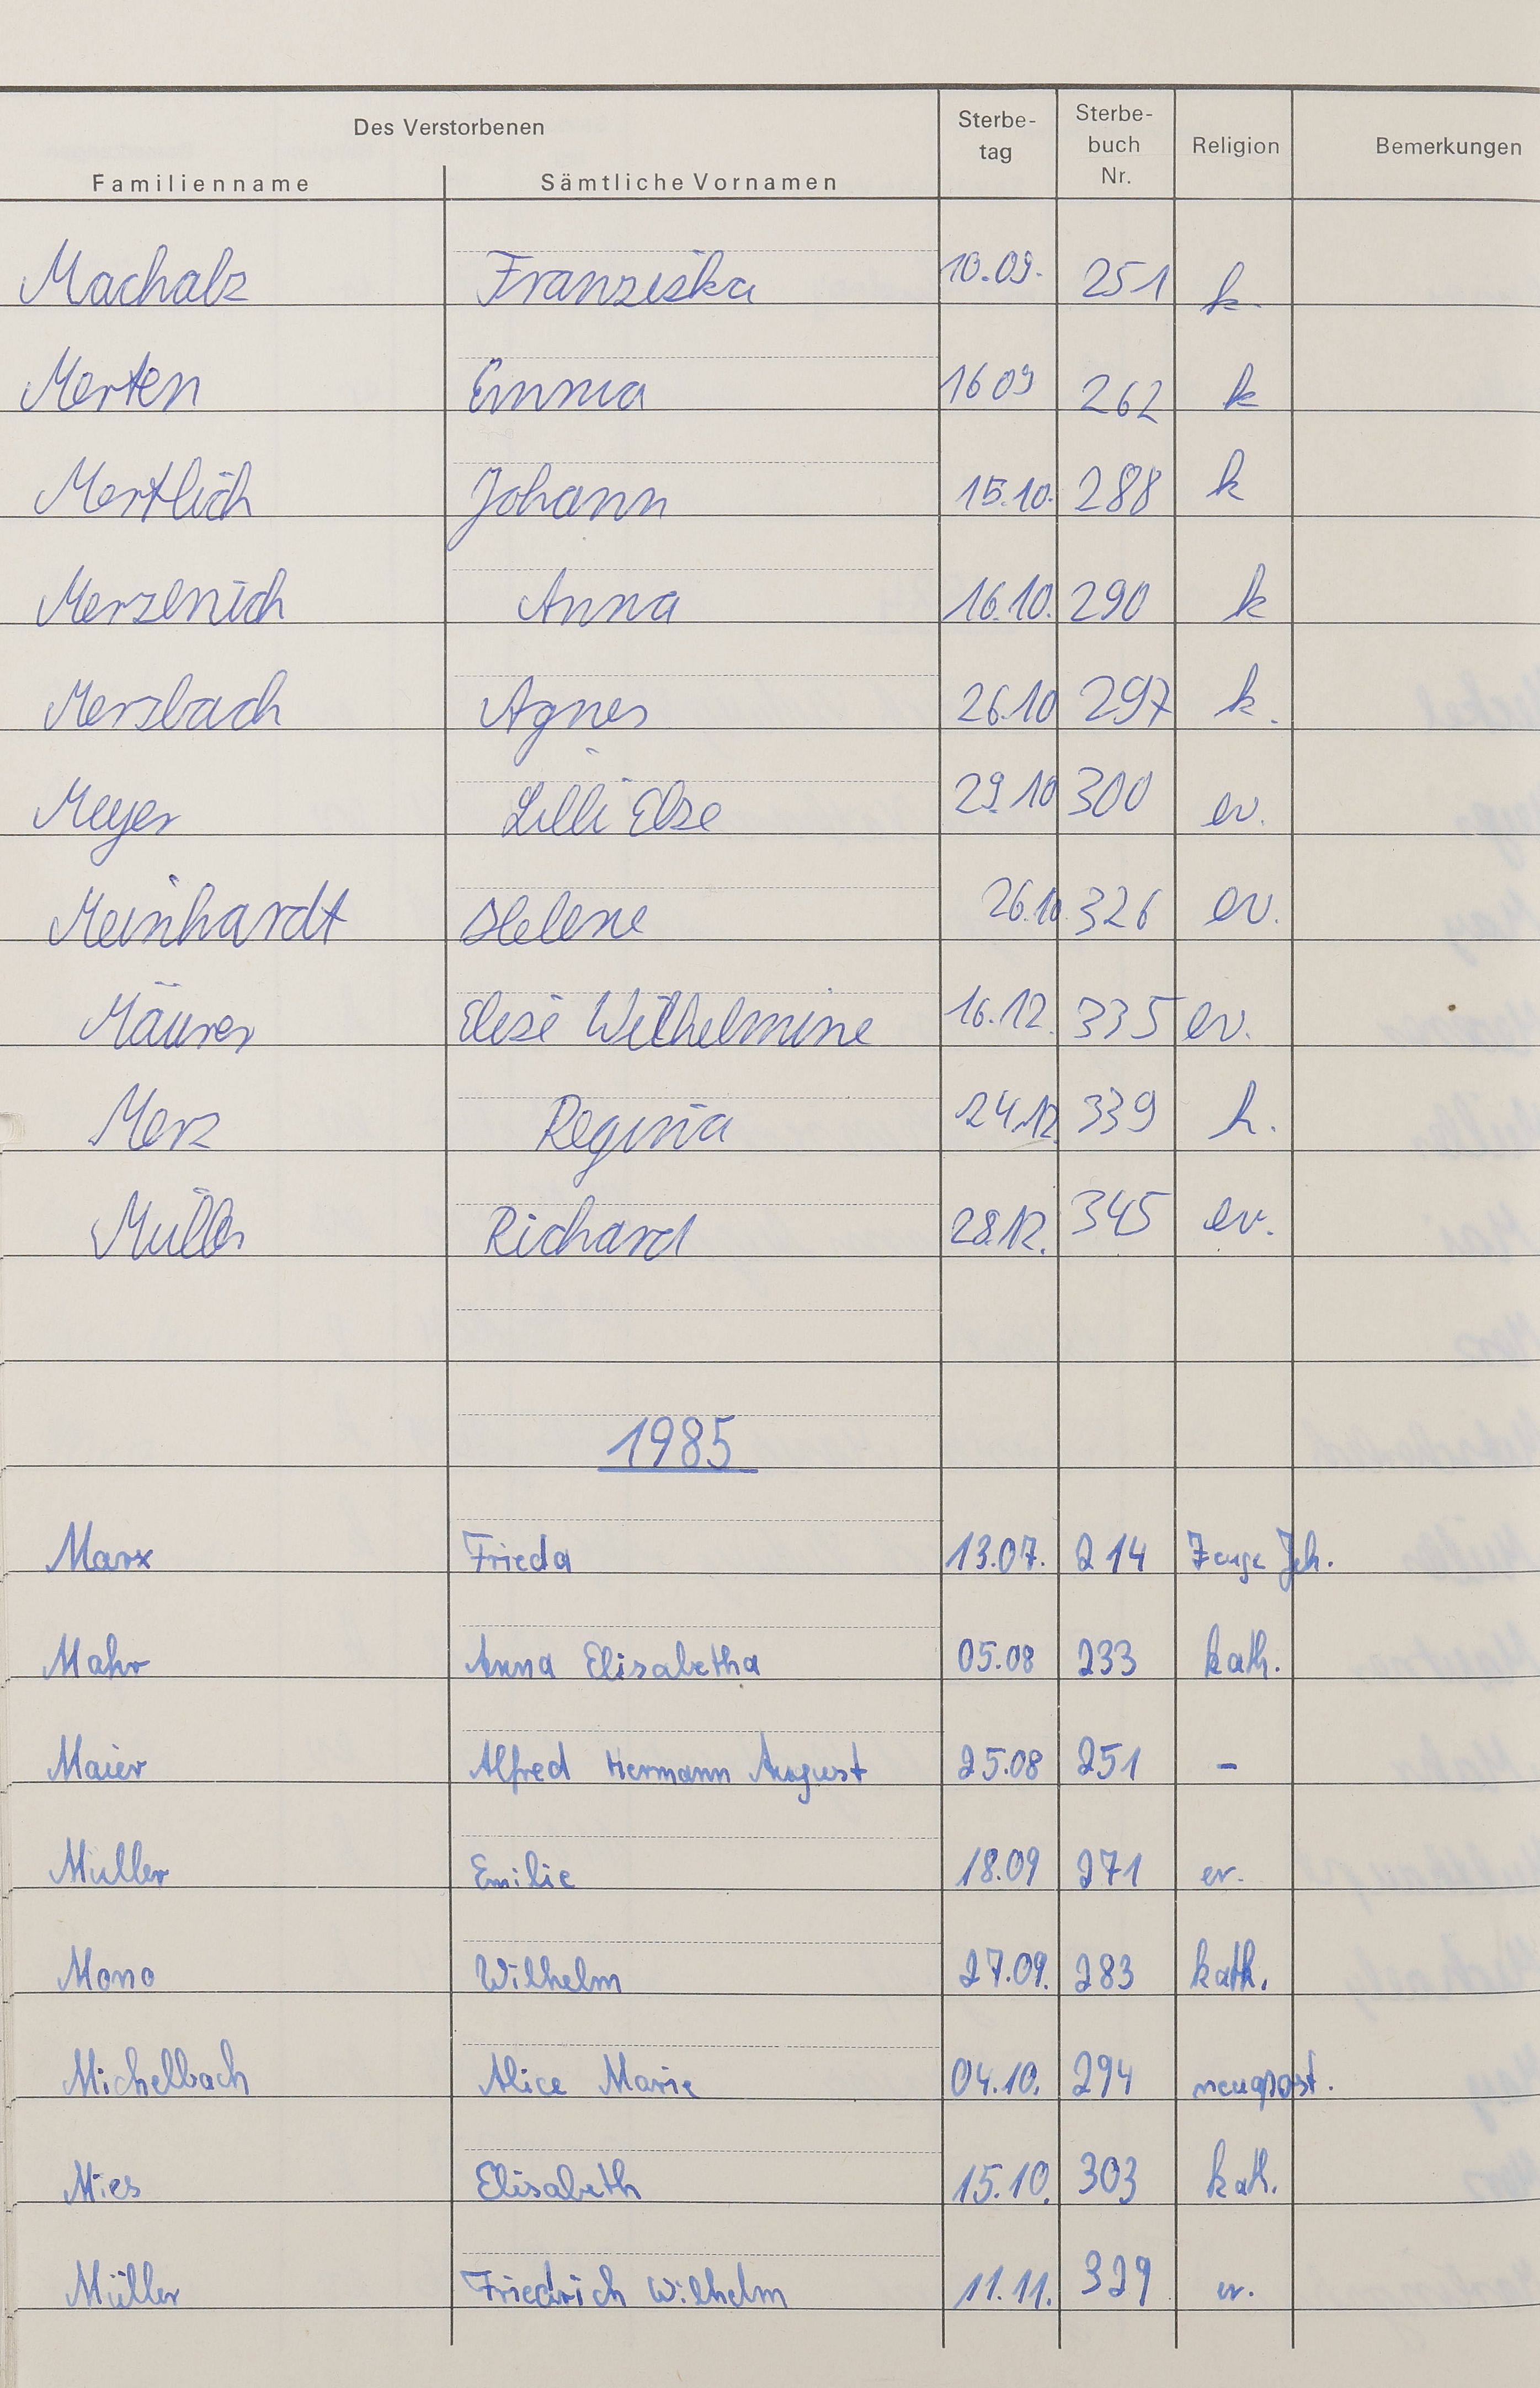 Des Verstorbenen
Familienname Sämtliche Vornamen Sterbe-tag Sterbe-buch Nr. Religion Bemerkungen
Machalz Franziska 10.09. 251 k.
Merten Emma 16 09 262 k
Mertlich Johann 15.10. 288 k
Merzenich Anna 16.10. 290 k
Mersbach Agnes 26.10 297 k.
Meyer Lilli Else 29.10 300 ev.
Meinhardt Helene 26.10. 326 ev.
Mäurer Elise Wilhelmine 16.12. 335 ev.
Merz Regina 24.12. 339 k.
Müller Richard 28.12. 345 ev.
1985
Marx Frieda 13.07. 214 Zeuge Jeh.
Mahr Anna Elisabetha 05.08 233 kath.
Maier Alfred Hermann August 25.08 251 -
Müller Emilie 18.09 271 ev.
Mono Wilhelm 27.09. 283 kath.
Michelbach Alice Marie 04.10. 294 neuapost.
Mies Elisabeth 15.10. 303 kath.
Müller Friedrich Wilhelm 11.11. 329 ev.